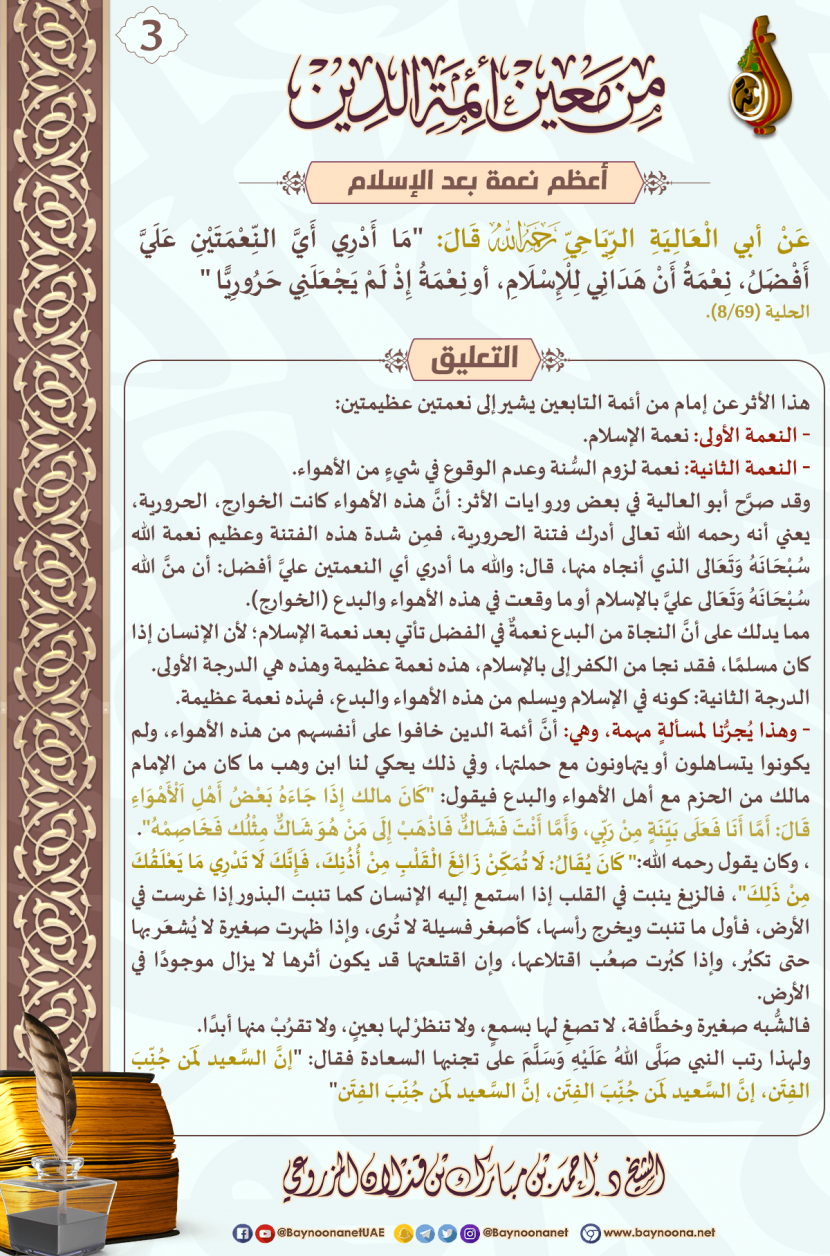 3
من معين أئمة الدين
أعظم نعمة بعد الإسلام
عَنْ أبي الْعَالِيَةِ الرِّيَاحِيّ رَحِمَهُ اللهُ قَالَ: "مَا أَدْرِي أَيَّ النِّعْمَتَيْنِ عَلَيَّ
أَفْضَلُ، نِعْمَةُ أَنْ هَدَانِي لِلْإِسْلَامِ، أو نِعْمَةُ إِذْ لَمْ يَجْعَلَنِي حَرُورِيًّا "
الحلية (8/69).
التعليق
هذا الأثر عن إمام من أئمة التابعين يشير إلى نعمتين عظيمتين:
- النعمة الأولى: نعمة الإسلام.
- النعمة الثانية: نعمة لزوم السُّنة وعدم الوقوع في شيءٍ من الأهواء.
وقد صرَّح أبو العالية في بعض وروايات الأثر: أنَّ هذه الأهواء كانت الخوارج، الحرورية،
يعني أنه رحمه الله تعالى أدرك فتنة الحرورية، فمِن شدة هذه الفتنة وعظيم نعمة الله
سُبْحَانَهُ وَتَعَالى الذي أنجاه منها، قال: والله ما أدري أي النعمتين عليَّ أفضل: أن منَّ الله
سُبْحَانَهُ وَتَعَالى عليَّ بالإسلام أو ما وقعت في هذه الأهواء والبدع (الخوارج).
مما يدلك على أنَّ النجاة من البدع نعمةٌ في الفضل تأتي بعد نعمة الإسلام؛ لأن الإنسان إذا
كان مسلمًا، فقد نجا من الكفر إلى بالإسلام، هذه نعمة عظيمة وهذه هي الدرجة الأولى.
الدرجة الثانية: كونه في الإسلام ويسلم من هذه الأهواء والبدع، فهذه نعمة عظيمة.
- وهذا يُجرُّنا لمسألةٍ مهمة، وهي: أنَّ أئمة الدين خافوا على أنفسهم من هذه الأهواء، ولم
يكونوا يتساهلون أو يتهاونون مع حملتها، وفي ذلك يحكي لنا ابن وهب ما كان من الإمام
مالك من الحزم مع أهل الأهواء والبدع فيقول: "كَانَ مالك إِذَا جَاءَهُ بَعْضُ أَهْلِ اَلْأَهْوَاءِ
قَالَ: أَمَّا أَنَا فَعَلَى بَيِّنَةٍ مِنْ رَبِّي، وَأَمَّا أَنْتَ فَشَاكٌّ فَاذْهَبْ إِلَى مَنْ هُوَ شَاكٌّ مِثْلُك فَخَاصِمْهُ".
، وكان يقول رحمه الله: "كَانَ يُقَالُ: لَا تُمَكِّنْ زَائِغَ الْقَلْبِ مِنْ أُذُنِكَ، فَإِنَّكَ لَا تَدْرِي مَا يَعْلَقُكَ
مِنْ ذَلِكَ"، فالزيغ ينبت في القلب إذا استمع إليه الإنسان كما تنبت البذور إذا غرست في
الأرض، فأول ما تنبت ويخرج رأسها، كأصغر فسيلة لا تُرى، وإذا ظهرت صغيرة لا يُشعَر بها
حتى تكبُر، وإذا كبُرت صعُب اقتلاعها، وإن اقتلعتها قد يكون أثرها لا يزال موجودًا في
الأرض.
فالشُّبه صغيرة وخطَّافة، لا تصغِ لها بسمعٍ، ولا تنظرْ لها بعينٍ، ولا تقرُبْ منها أبدًا.
ولهذا رتب النبي صَلَّى اللهُ عَلَيْهِ وَسَلَّمَ على تجنبها السعادة فقال: "إنَّ السَّعيد لَمن جُنِّبَ
الفِتَن، إنَّ السَّعيد لَمن جُنِّبَ الفِتَن، إنَّ السَّعيد لَمن جُنِّبَ الفِتَن"
الشيخ د. أحمد بن مبارك بن قذلان المزروعي
@BaynoonanetUAE @Baynoonanet www.baynoona.net